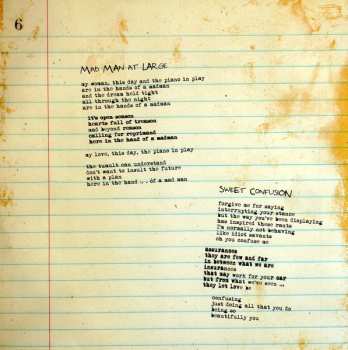 6
MAD MAN AT LARGE
my woman, this day and the piano in play
are in the hands of a madman
and the dream hold tight
all through the night
are in the hands of a madman
it's open season
hearts full of treason
and beyond reason
calling for reprimand
here in the hand of a madman
my love, this day, the piano in play
the tumult can understand
don't want to insult the future
with a plan
here in the hand ... of a mad man
SWEET CONFUSION
forgive me for saying
interrupting your stance
but the way you've been displaying
has inspired these rants
I'm normally not behaving
like idiot savants
oh you confuse me
assurances
they are few and far
in between what we are
insurances
that may work for your car
but from what we've seen ...
they let love be
confusing
just doing all that you do
being so
beautifully you